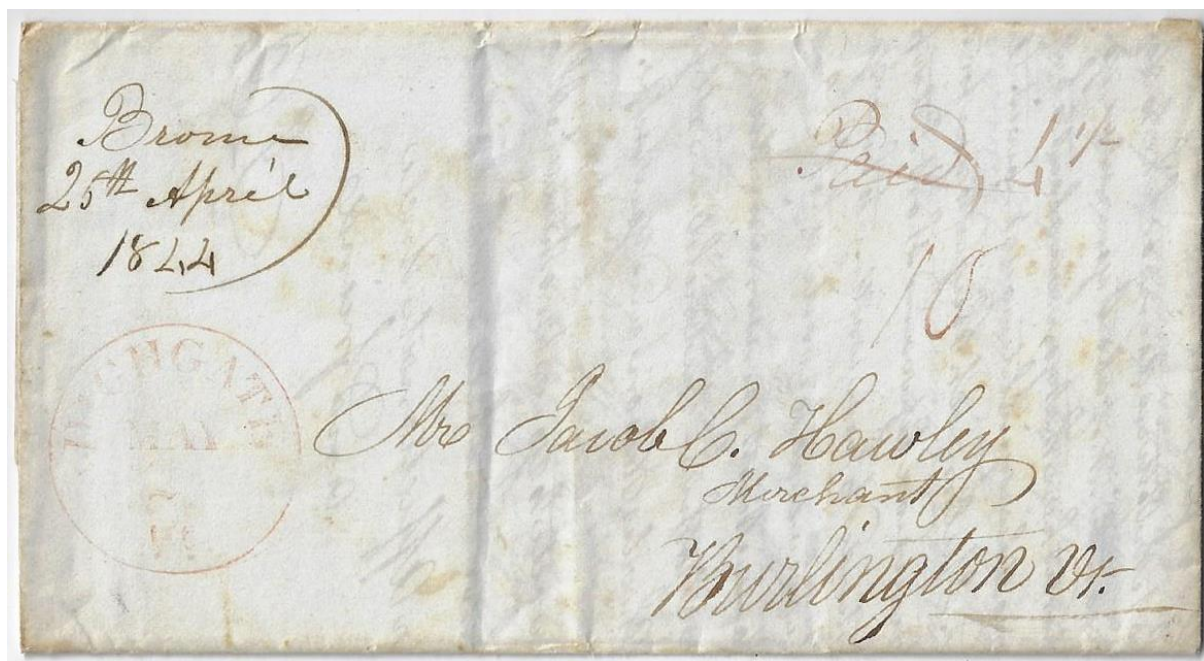 Brome
25th April
1844
Paid 4 1/2
10
HIGHGATE
MAY
Vt.
Mr Jacob C. Hawley
Merchant
Burlington Vt.